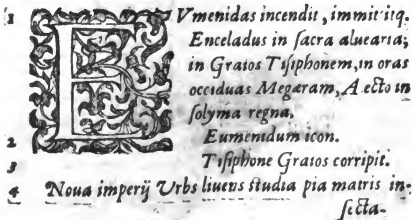 1 EVmenidas incendit, immititq́.
Enceladus in ſacra aluearia;
in Graios Tiſiphonem, in oras
occiduas Megæram, Alecto in
ſolyma regna.
2 Eumenidum icon.
3 Tiſiphone Graios corripit.
4 Noua imperij Vrbs liuens ſtudia pia matris in-
ſecta-